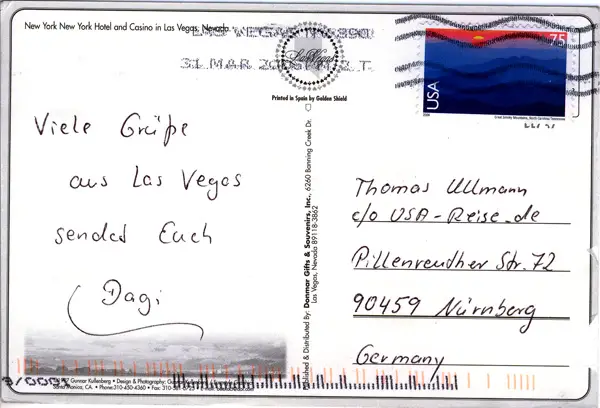 New York New York Hotel and Casino in Las Vegas, Nevada
LAS VEGAS NV 890
31 MAR
Las Vegas
Printed in Spain by Golden Shield
75
USA
Great Smoky Mountains, North Carolina/Tennessee
Viele Grüße
aus Las Vegas
sendet Euch
Dagi
Published & Distributed By: Donmar Gifts & Souvenirs, Inc., 6260 Banning Creek Dr.
Las Vegas, Nevada 89118-3862
Thomas Ullmann
c/o USA-Reise.de
Pillenreuther Str. 72
90459 Nürnberg
Germany
Gunnar Kullenberg • Design & Photography:
Santa Monica, CA. • Phone: 310-450-4360 • Fax: